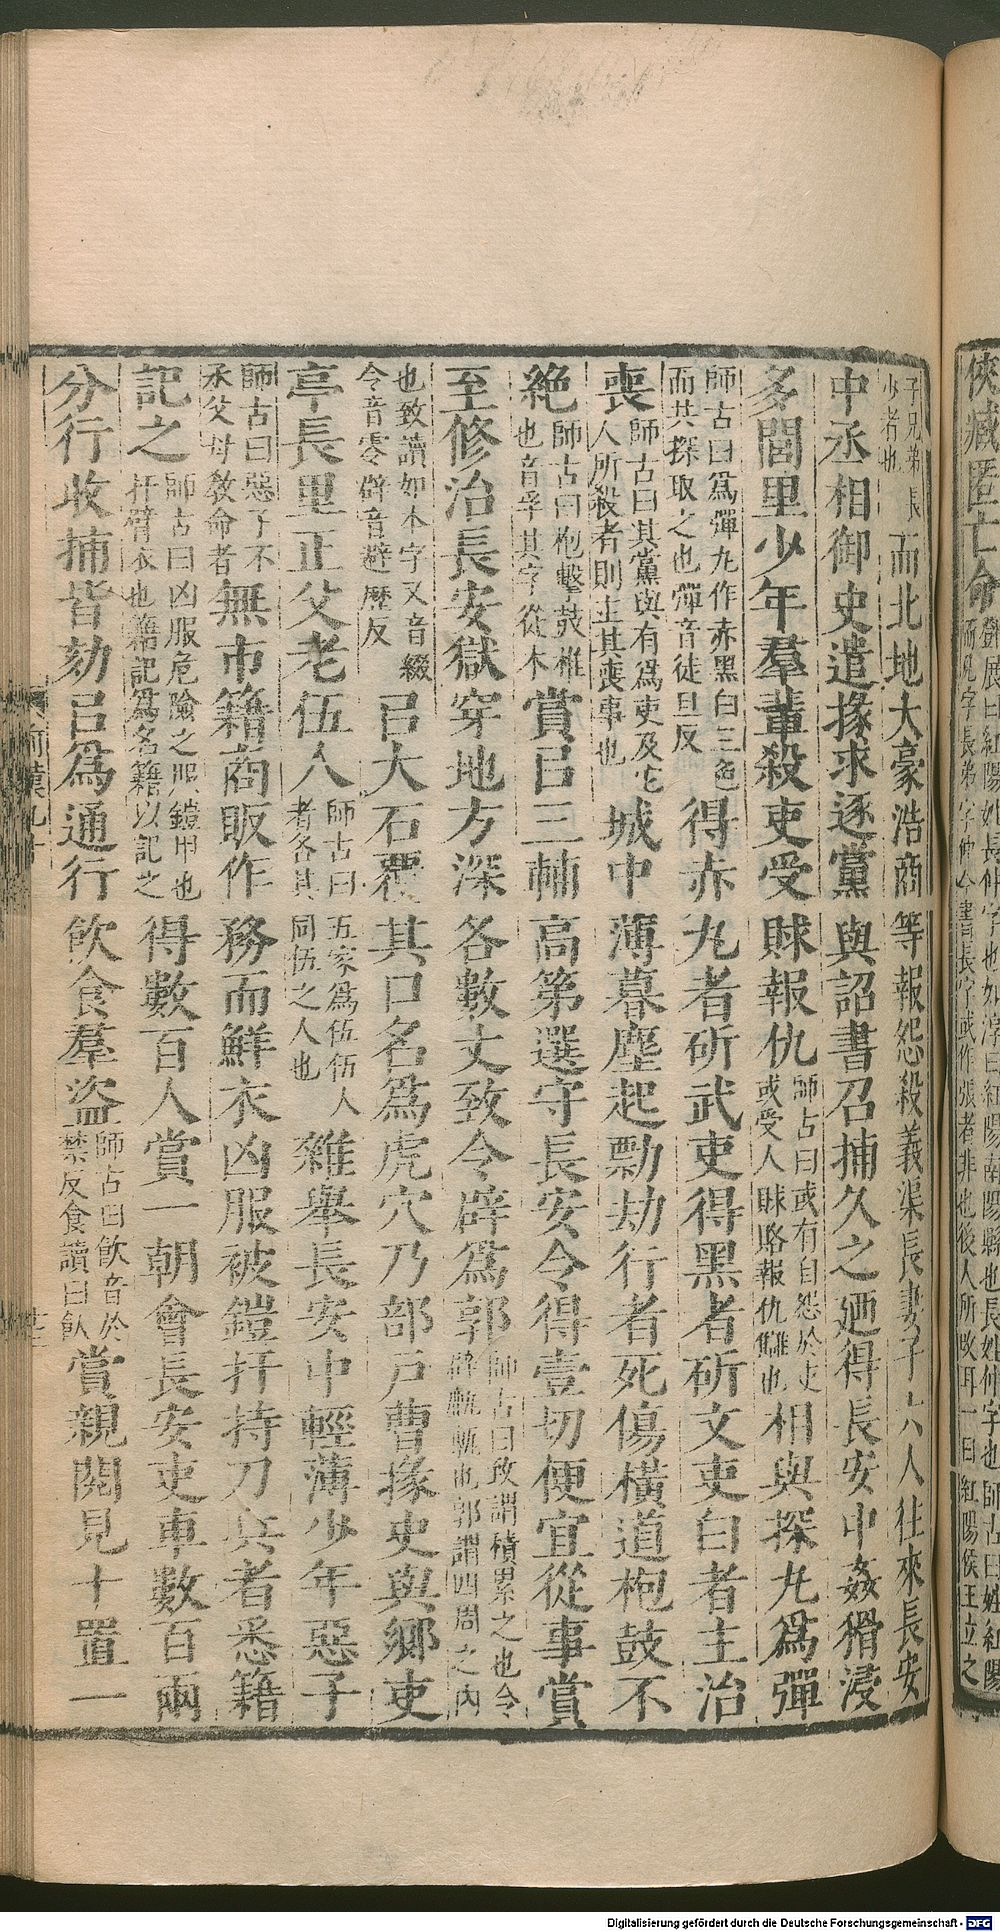 俠臧匿亡命
子兄弟長少者也而北地大豪浩商等報怨殺義渠長妻子六人往來長安
中丞相御史遣掾求逐黨與詔書召捕久之廼得長安中姦猾浸
多閭里少年羣輩殺吏受賕報仇師古曰或有自怨於吏或受人賕賂報仇讎也相與探丸爲彈
師古曰爲彈丸作赤黑白三色而共探取之也彈音徒旦反得赤丸者斫武吏得黑者斫文吏白者主治
喪師古曰其黨與有爲吏及它人所殺者則主其喪事也城中薄暮塵起勡劫行者死傷橫道枹鼓不
絶師古曰枹擊鼓椎也音孚其字從木賞㠯三輔高第選守長安令得壹切便宜從事賞
至修治長安獄穿地方深各數丈致令辟爲郭師古曰致謂積累之也令辟甎也郭謂四周之內
也致讀如本字又音綴令音零辟音避歷反㠯大石覆其口名爲虎穴乃部戶曹掾史與鄉吏
亭長里正父老伍人師古曰五家爲伍伍人者各其同伍之人也雜舉長安中輕薄少年惡子
師古曰惡子不承父母教命者無市籍商販作務而鮮衣凶服被鎧扞持刀兵者悉籍
記之師古曰凶服危險之服鎧甲也扞臂衣也籍記爲名籍以記之得數百人賞一朝會長安吏車數百兩
分行收捕皆劾㠯爲通行飲食羣盜師古曰飲音於禁反食讀曰飤賞親閱見十置一
Digitalisierung gefördert durch die Deutsche Forschungsgemeinschaft - DFG